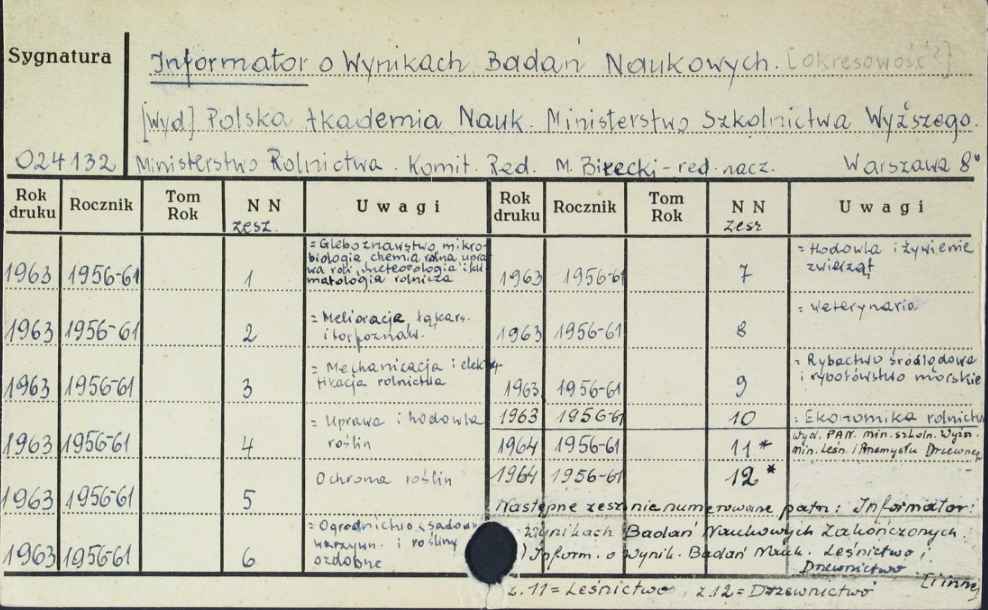 Sygnatura
Informator o Wynikach Badań Naukowych. [okresowość?]
[Wyd] Polska Akademia Nauk. Ministerstwo Szkolnictwa Wyższego.
024132 Ministerstwo Rolnictwa. Komit. Red. M. Birecki - red. nacz. Warszawa 8°
Rok druku Rocznik Tom Rok NN zesz. Uwagi Rok druku Rocznik Tom Rok NN zesz Uwagi
1963 1956-61 1 = Gleboznawstwo mikro-
biologia chemia rolna upra-
wa roli, meteorologia i kli-
matologia rolnicza
1963 1956-61 2 = Melioracja łąkars.
i torfoznaw.
1963 1956-61 3 = Mechanizacja i elektry-
fikacja rolnictwa
1963 1956-61 4 = Uprawa i hodowla
roślin
1963 1956-61 5 Ochrona roślin
1963 1956-61 6 = Ogrodnictwo, sadown
warzywn. i rośliny
ozdobne
1963 1956-61 7 = Hodowla i żywienie
zwierząt
1963 1956-61 8 = Weterynaria
1963 1956-61 9 = Rybactwo śródlądowe
i rybołówstwo morskie
1963 1956-61 10 = Ekonomika rolnictwa
1964 1956-61 11* Wyd. PAN. Min. Szkoln. Wyższ.
Min. Leśn. i Przemysłu Drzewneg
1964 1956-61 12*
Następne zesz nienumerowane patrz: Informator:
Wynikach Badań Naukowych Zakończonych.
) Inform. o Wynik. Badań Nauk. Leśnictwo i
Drzewnictwo
[i inne]
z. 11 = Leśnictwo, z. 12 = Drzewnictwo